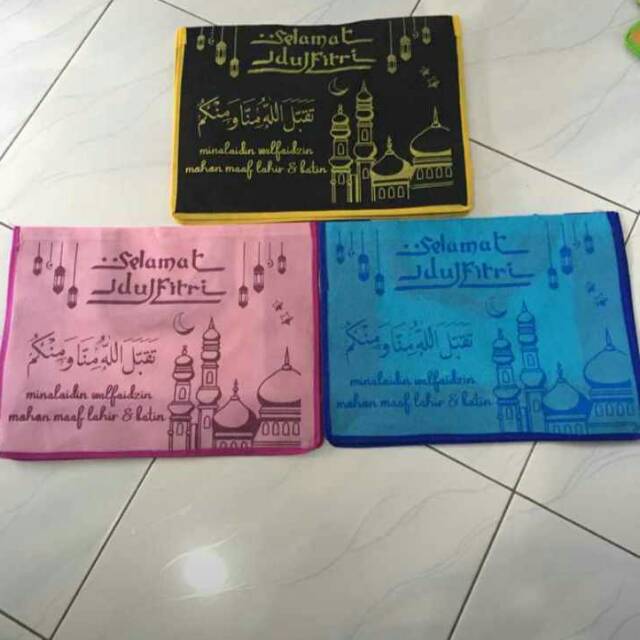 Selamat
Idul Fitri
تقبل الله منا ومنكم
minalaidin walfaidzin
mohon maaf lahir & batin
Selamat
Idul Fitri
تقبل الله منا ومنكم
minalaidin walfaidzin
mohon maaf lahir & batin
Selamat
Idul Fitri
تقبل الله منا ومنكم
minalaidin walfaidzin
mohon maaf lahir & batin